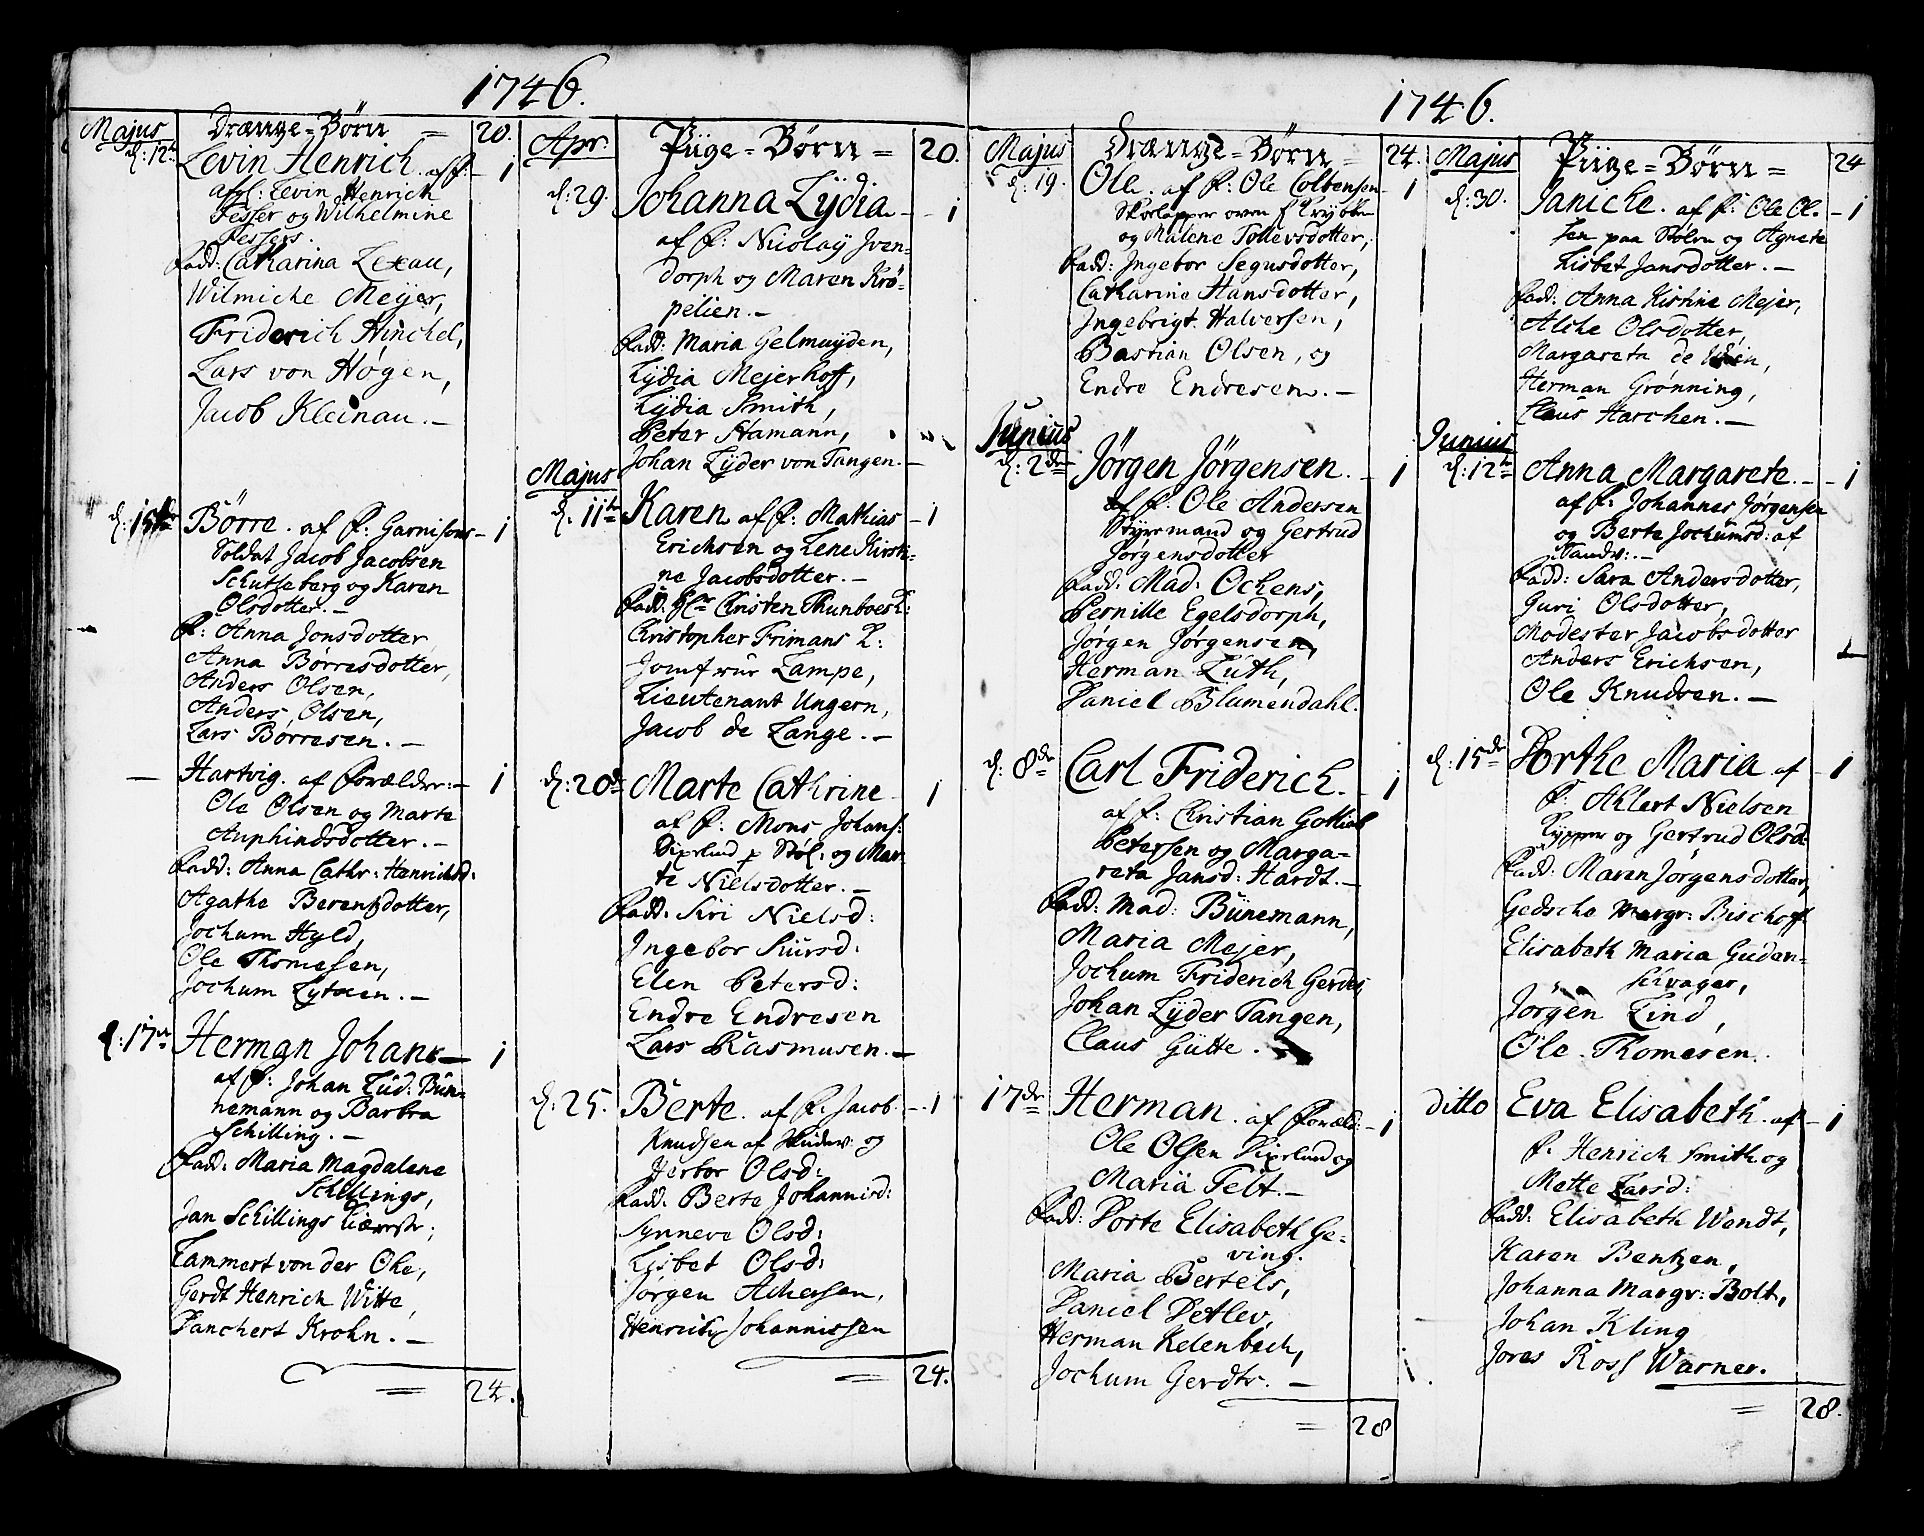 1746.
Majus Drænge-Børn = 20.
d: 12te Levin Henrich. af F: - 1
afgl: Levin Henrich
Fesser og Wilhelmine
Fessers.
Fadd: Catharina Lexau,
Wilmiche Meÿer,
Friderich Hinchel,
Lars von Høgen,
Jacob Kleinau. -
d: 15de Børre. af F: Garnisons - 1
Soldat Jacob Jacobsen
Schutteberg og Karen
Olsdotter. -
F: Anna Jonsdotter
Anna Børresdotter,
Anders Olsen,
Anders Olsen,
Lars Børresen. -
- Hartvig. af Forældre: - 1
Ole Olsen og Marte
Anphindsdotter. -
Fadd: Anna Cathr: Henrichsd:
Agathe Berentzdotter,
Jochum Hyld,
Ole Thomesen,
Jochum Lytzen. -
d: 17de Herman Johan - 1
af F: Johan Lüd: Bün-
nemann og Barbra
Schilling. -
Fadd: Maria Magdalene
Schillings,
Jan Schillings
Lammert von der Ohe,
Gerdt Henrich Witte,
Danchert Krohn. -
= 24.
Apr. Piige-Børn = 20.
d: 29. Johanna Lÿdia - 1
af F: Nicolaÿ Iven-
dorph og Maren Krø-
pelien. -
Fadd: Maria Gelmuyden,
Lÿdia Mejerhoff,
Lÿdia Smith,
Peter Hamann,
Johan Lÿder von Tangen. -
Majus
d: 11te Karen af F: Mathias - 1
Erichsen og Lene Kirsti-
ne Jacobsdotter. -
Fadd: Hr Christen Thunboes K:
Christopher Frimans K:
Jomfrue Lampe,
Lieutenant Ungern,
Jacob de Lange. -
d: 20de Marte Cathrine 1
af F: Mons Johans:
Dixelund p Støl: og Mar-
te Nielsdotter. -
Fadd: Siri Nielsd:
Ingebor Siursd:
Elen Petersd:
Endre Endresen
Lars Rasmusen. -
d: 25. Berte. af F: Jacob - 1
Knudsen af Skudev: og
Herbor Olsd:
Fadd: Berte Johannisd:
Synneve Olsd:
Lisbet Olsd:
Jørgen Achersen,
Henrich Johannissen
= 24.
1746.
Majus Drænge-Børn = 24.
d: 19. Ole. af F: Ole Colbensen - 1
og Malene Tollevsdotter,
Fadd: Ingebor Segusdotter,
Catharine Hansdotter,
Ingebrigt Halversen,
Bastian Olsen, og
Endre Endresen. -
Junius
d: 2den Jörgen Jörgensen. - 1
af F: Ole Andersen
Styrmand og Gertrud
Jørgensdotter
Fadd: Mad: Ockens,
Pernille Egelsdorph,
Jørgen Jørgensen,
Herman Lüth,
Daniel Blumendahl.
d: 8de Carl Friderich. - 1
af F: Christian Gotlieb
Petersen og Marga-
reta Jansd: Hardt. -
Fadd: Mad: Bünemann,
Maria Mejer,
Jochum Friderich Gerdes
Johan Lÿder Tangen,
Claus Gütte. -
17de Herman. af Foræld: - 1
Ole Olsen Dixelund og
Maria Felt. -
Fadd: Dorte Elisabeth Ge-
ving.
Maria Bertels,
Daniel Detlev,
Herman Kelenbech,
Jochum Gerdtz. -
= 28
Majus Piige-Børn = 24
d: 30. Janiche. af F: Ole Ol- - 1
sen paa Stølen og Agnete
Lisbet Jansdotter. -
Fadd: Anna Kistine Mejer,
Alche Olsdotter,
Margareta de Wein,
Herman Grønning,
Claus Harchen. -
Junius
d: 12te Anna Margarete. - 1
af F: Johannes Jørgensen
og Berte Jochumsd: af
Sandv: -
Fadd: Sara Andersdotter,
Guri Olsdotter,
Modester Jacobsdotter
Anders Erichsen,
Ole Knudsen. -
d: 15de Dorthe Maria af - 1
F: Ahlert Nielsen
Kypper og Gertrud Olsd:
Fadd: Maren Jørgensdotter,
Gedsche Margr: Bischoff
Elisabeth Maria Guden-
schvager,
Jørgen Lind,
Ole Thomesen.
ditto Eva Elisabeth af - 1
F. Henrich Smith og
Mette Larsd:
Fadd: Elisabeth Wendt,
Karen Bentzen,
Johanna Margr: Bolt,
Johan Kling
Joras Ross Warner.
= 28.